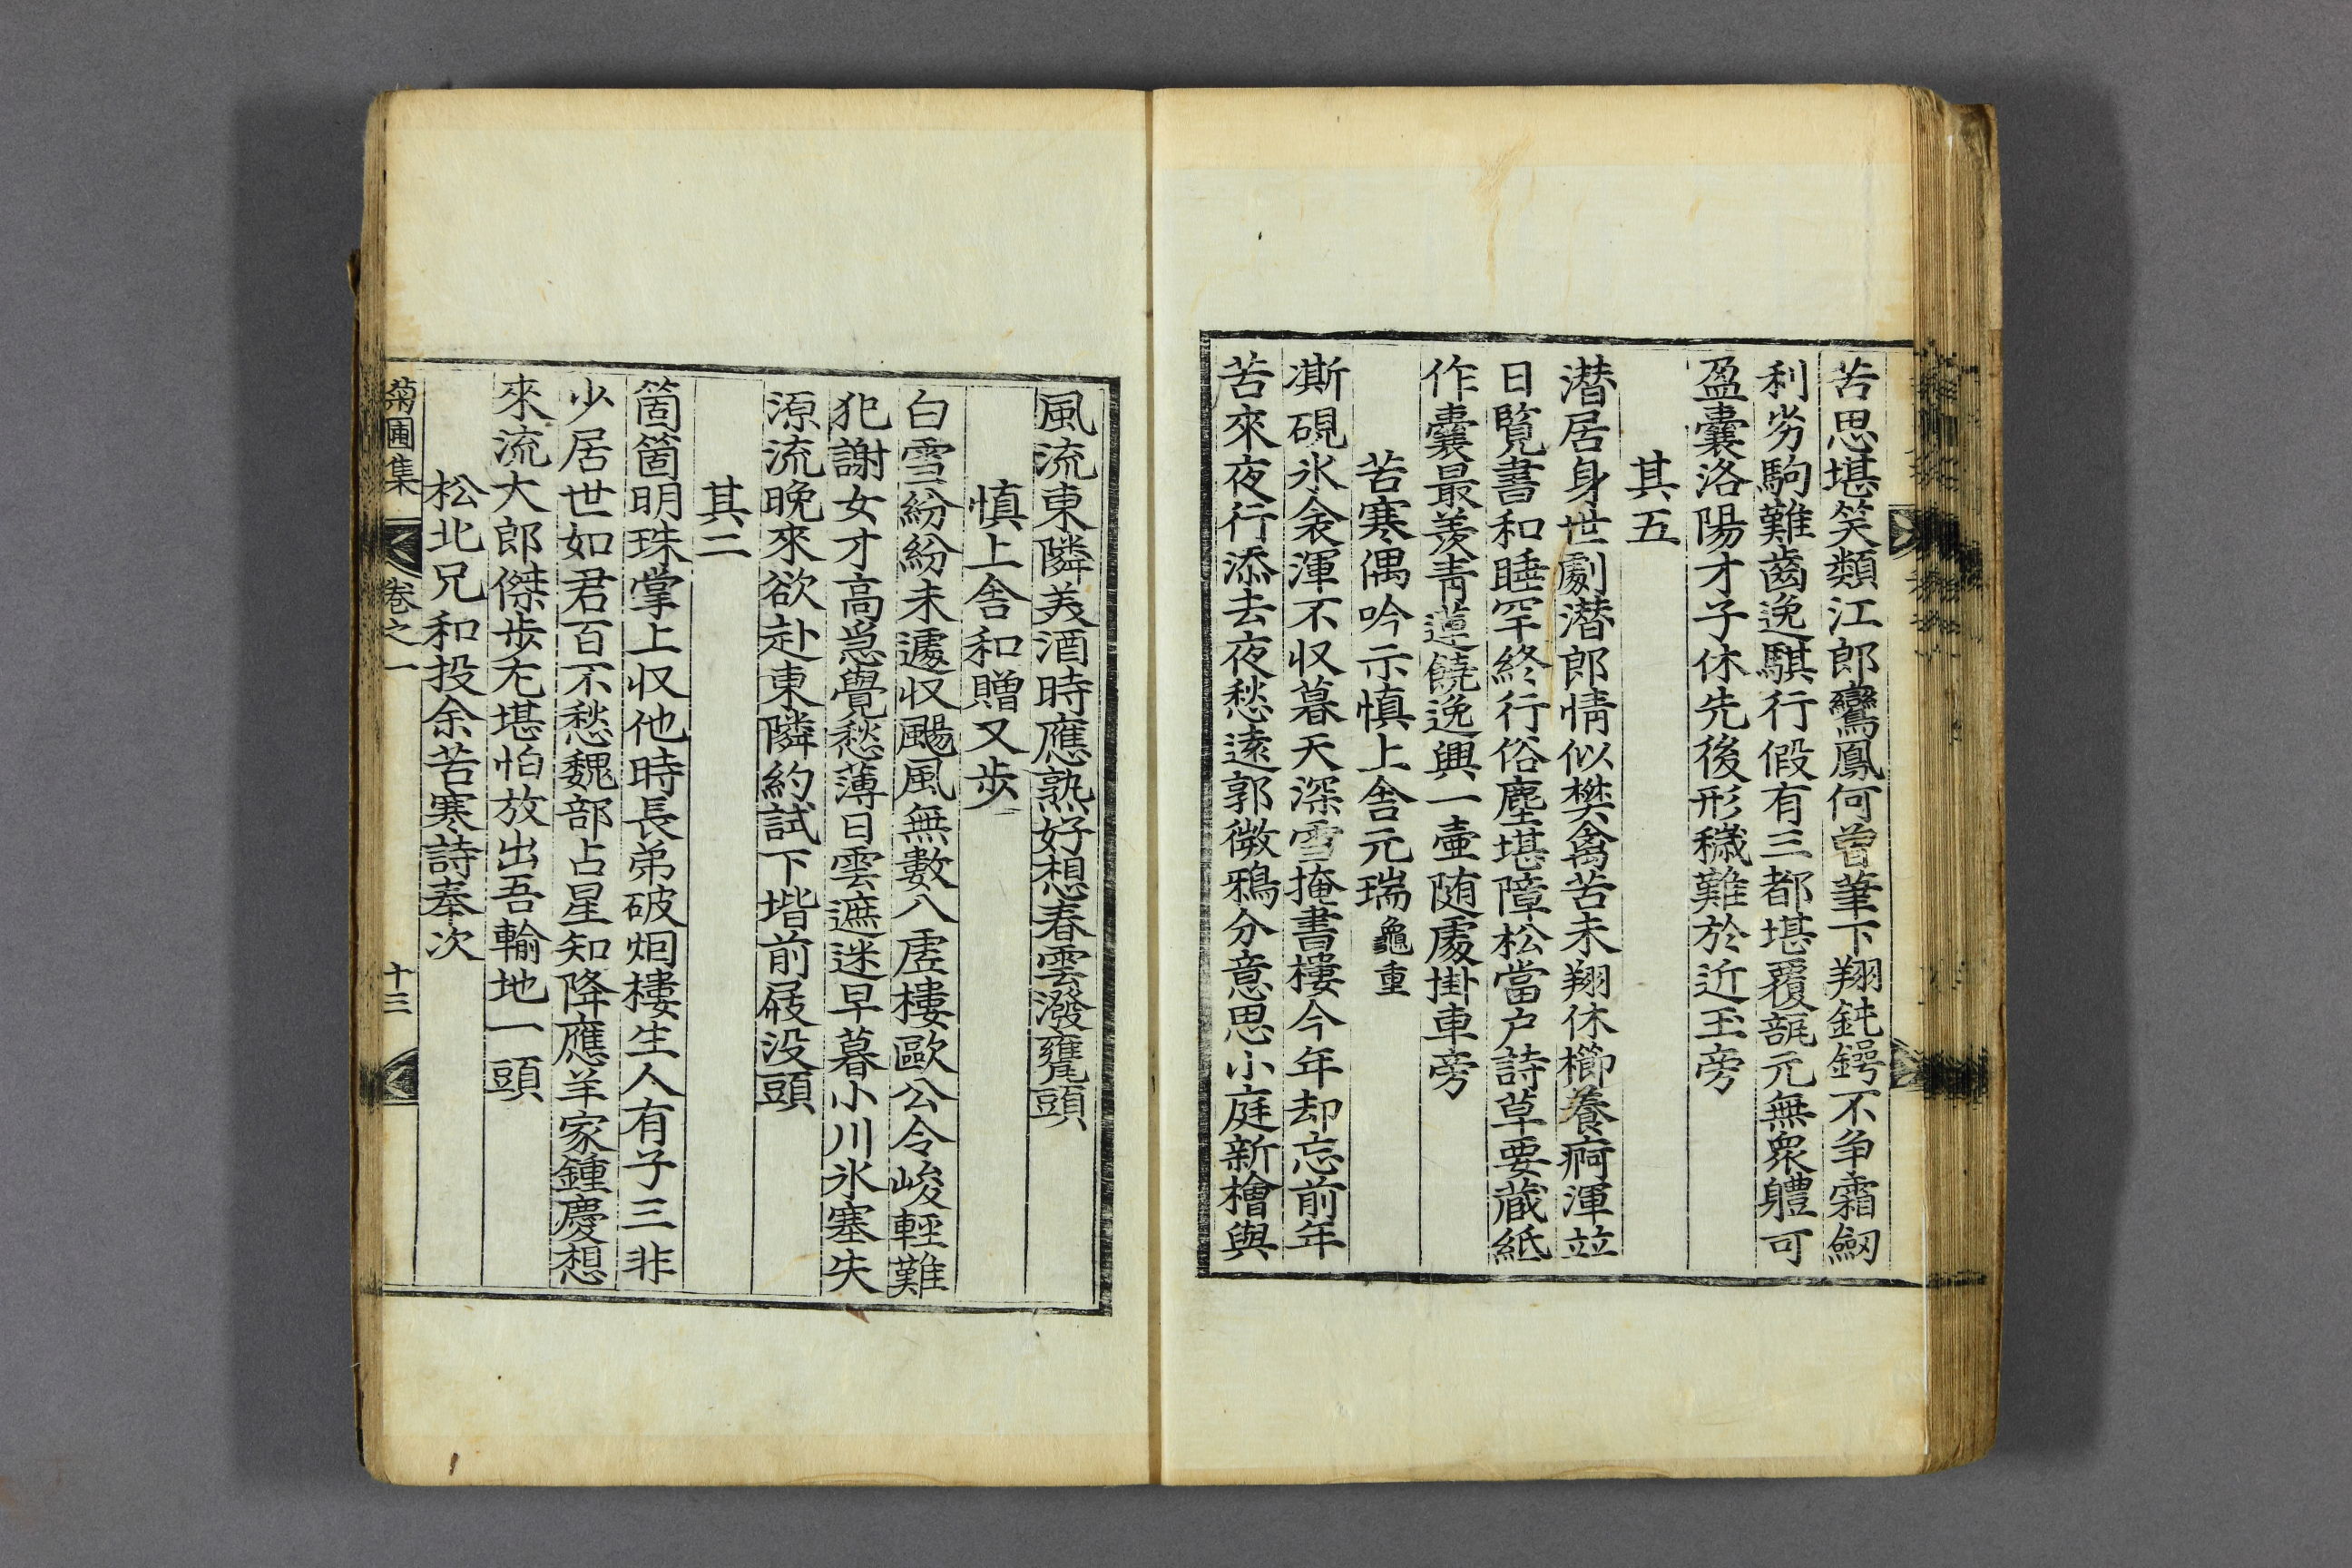 苦思堪笑類江郎鸞鳳何曾筆下翔鈍鍔不争霜劒
利劣駒難齒逸騏行假有三都堪覆瓿元無衆軆可
盈囊洛陽才子休先後形穢難於近玉旁
其五
潜居身世劇潜郎情似樊禽苦未翔休櫛養痾渾並
日覧書和睡罕終行俗塵堪障松當户詩草要藏紙
作囊最羨青蓮饒逸興一壷随處掛車旁
苦寒偶吟示慎上舎元瑞龜重
凘硯氷衾渾不収暮天深雪掩書樓今年却忘前年
苦來夜行添去夜愁遠郭微鴉分意思小庭新檜與
風流東隣美酒時應熟好想春雲潑甕頭
慎上舎和贈又歩
白雪紛紛未遽収颺風無數入虗樓歐公令峻輕難
犯謝女才高爲覺愁薄日雲遮迷早暮小川氷塞失
源流晚來欲赴東隣約試下堦前屐没頭
其二
箇箇明珠掌上収他時長弟破烟樓生人有子三非
少居世如君百不愁魏部占星知降應羊家鍾慶想
來流大郎傑步尤堪怕放出吾輸地一頭
松北兄和投余苦寒詩奉次
菊圃集 卷之一 十三